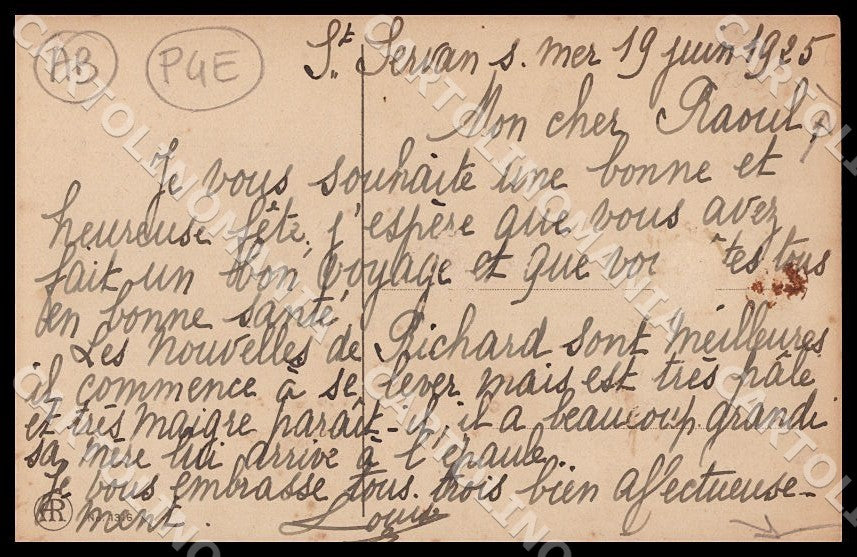 AB PGE
St Servan s. mer 19 juin 1925
Mon cher Raoul,
Je vous souhaite une bonne et
heureuse fête, j'espère que vous avez
fait un bon voyage et que vou tes tous
en bonne santé,
Les nouvelles de Richard sont meilleures
il commence à se lever mais est très pâle
et très maigre paraît-il, il a beaucoup grandi
sa mère lui arrive à l'épaule.
Je vous embrasse tous trois bien affectueuse-
ment. Louise
AR
CARTOLINOMANIA